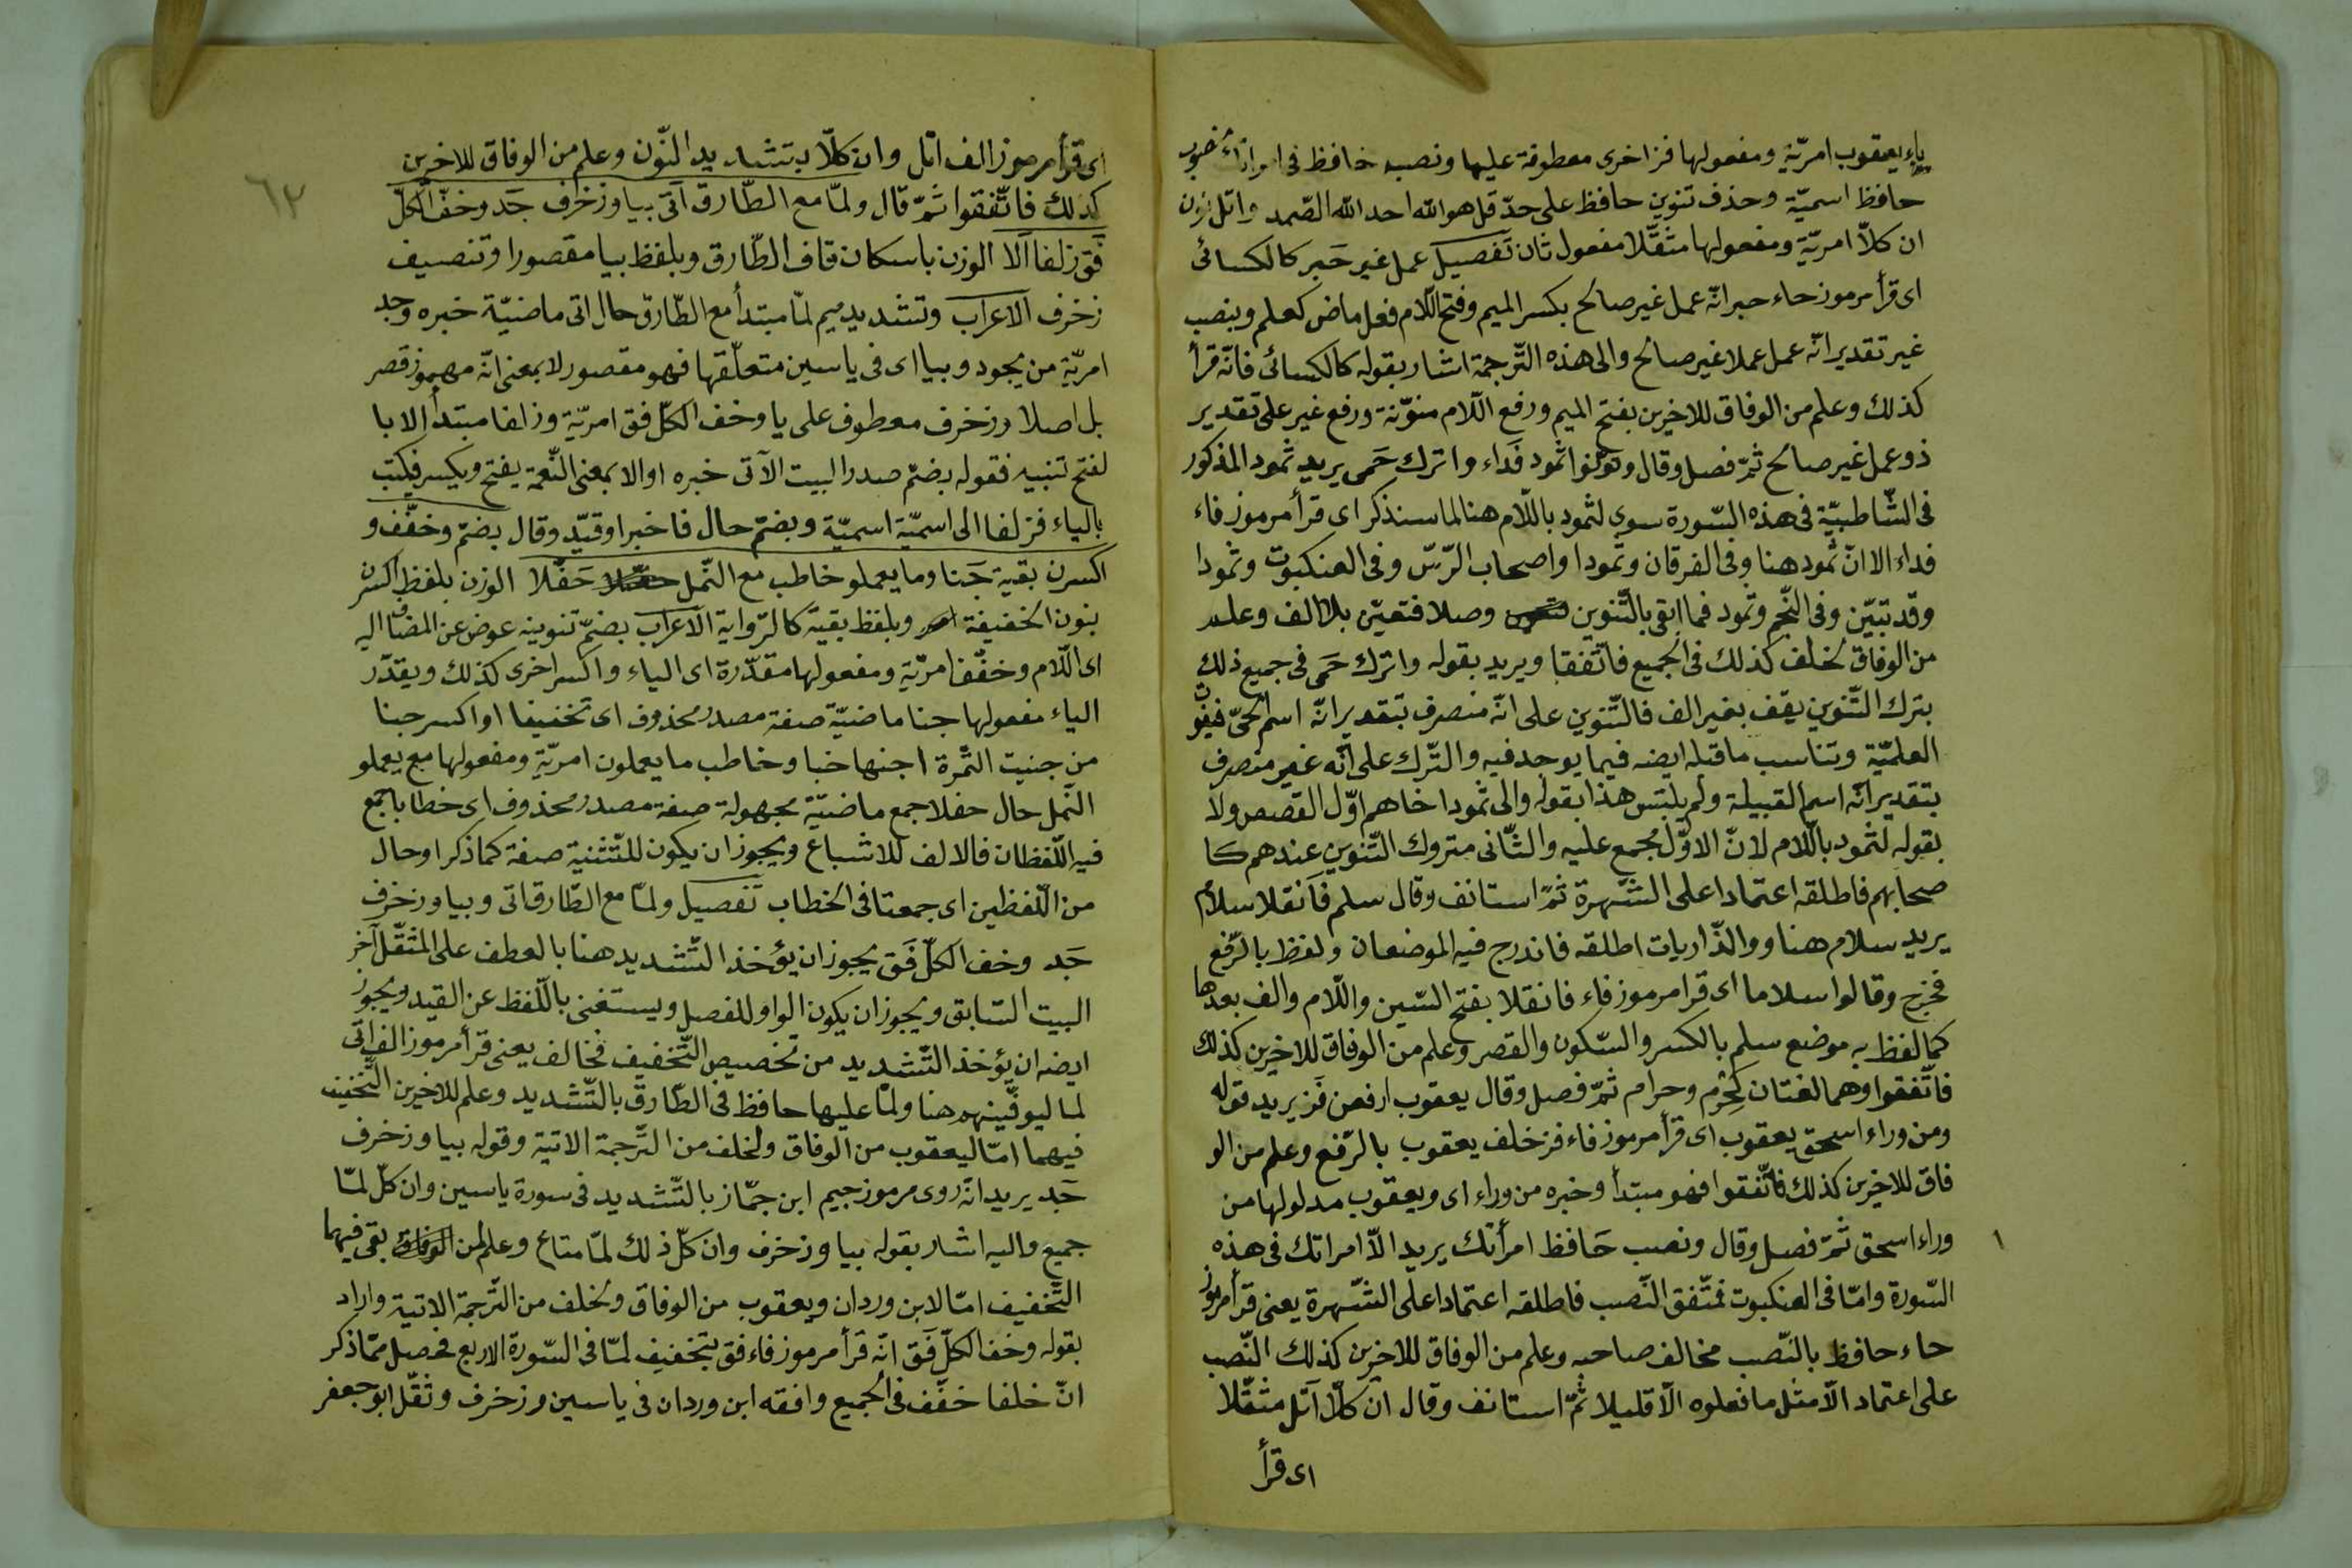 ياء يعقوب امريّة ومفعولها فز اخرى معطوفة عليها ونصب حافظ فى امراتك
حافظ اسميّة وحذف تنوين حافظ على حدّ قل هو الله احد الله الصّمد واتل نون
ان كلاّ امريّة ومفعولها مثقّلا مفعول ثان تفصيل عمل غير حَبر كالكسائى
اى قرأ مرموز حاء حبر انّه عمل غير صالح بكسر الميم وفتح اللّام فعل ماض كعلم وبنصب
غير تقدير انّه عمل عملا غير صالح والى هذه التّرجمة اشار بقوله كالكسائى فانّه قرأ
كذلك وعلم من الوفاق للاخرين بفتح الميم ورفع اللّام منوّنة ورفع غير على تقدير
ذو عمل غير صالح ثمّ فصل وقال ونوّنوا ثمود فَداء واترك حَمى يريد ثمود المذكور
فى الشّاطبيّة فى هذه السّورة سوى لثمود باللّام هنا لما سنذكر اى قرأ مرموز فاء
فداء الا انّ ثمود هنا وفى الفرقان وثمودا واصحاب الرّسّ وفى العنكبوت وثمودا
وقد تبيّن وفى النّجم وثمود فما ابقى بالتّنوين وصلا فتعيّن بلا الف وعلم
من الوفاق لخلف كذلك فى الجميع فاتّفقا ويريد بقوله واترك حَمى فى جميع ذلك
بترك التّنوين يقف بغير الف فالتّنوين على انّه منصرف بتقدير انّه اسم الحىّ
العلميّة وتناسب ماقبله ايضه فيما يوجد فيه والتّرك على انّه غير منصرف
بتقدير انّه اسم القبيلة ولم يلبتس هذا بقوله والى ثمودا خاهم اوّل القصص ولا
بقوله لثمود باللّام لانّ الاوّل مجمع عليه والثّانى متروك التّنوين عندهم كا
صحابهم فاطلقه اعتمادا على الشّهرة ثمّ استانف وقال سلم فَانقلا سلام
يريد سلام هنا ووالذّاريات اطلقه فاندرج فيه الموضعان ولفظ بالرّفع
فخرج وقالوا سلاما اى قرا مرموز فاء فانقلا بفتح السّين واللّام والف بعدها
كما لفظ به موضع سلم بالكسر والسّكون والقصر وعلم من الوفاق للاخرين كذلك
فاتّفقوا وهما لغتان كحِرم وحرام ثمّ فصل وقال يعقوب ارفعن فَز يريد قوله
ومن وراء اسحق يعقوب اى قرأ مرموز فاء فز خلف يعقوب بالرّفع وعلم من الو
فاق للاخرين كذلك فاتّفقوا فهو مبتدأ وخبره من وراء اى ويعقوب مدلولها من
وراء اسحق ثمّ فصل وقال ونصب حَافظ امرأتك يريد الاّ امراتك فى هذه
السّورة وامّا فى العنكبوت فمتّفق النّصب فاطلقه اعتمادا على الشّهرة يعنى قرأ مرموز
حاء حافظ بالنّصب مخالف صاحبه وعلم من الوفاق للاخرين كذلك النّصب
على اعتماد الاّ مثل ما فعلوه الاّ قليلا ثمّ استانف وقال ان كلاّ اَتل مثقّلا
اى قرأ
١
٦٣
اى قرأ مرموز الف اتل وان كلاّ بتشديد النّون وعلم من الوفاق للاخرين
كذلك فاتّفقوا ثمّ قال ولمّا مع الطّارق اَتى بيا وزخرف جَد وخفّ الكلّ
فَق زلفا اَلا الوزن باسكان قاف الطّارق وبلفظ بيا مقصورا وتنصيف
زخرف الاعراب وتشديد ميم لمّا مبتدأ مع الطّارق حال اتى ماضيّة خبره وجد
امريّة من يجود وبيا اى فى ياسين متعلّقها فهو مقصور لا بمعنى انّه مهموز قصر
بل اصلا وزخرف معطوف على يا وخف الكلّ فق امريّة وزلفا مبتدأ الا با
لفتح تنبيه فقوله بضمّ صدر البيت الآتى خبره او الا بمعنى النّعمة يفتح ويكسر فيكتب
بالياء فزلفا الى اسميّة اسميّة وبضمّ حال فاخبر او قيّد وقال بضمّ وخفّف و
اكسرن بقية جَنا وما يعملو خاطب مع النّمل حَفّلا الوزن بلفظ اكسرن
بنون الخفيفة وبلفظ بقية كالرّواية الاعراب بضمّ تنوينه عوض عن المضاف اليه
اى اللّام وخفّف امريّة ومفعولها مقدّرة اى الياء واكسر اخرى كذلك ويقدّر
الياء مفعولها جنا ماضيّة صفة مصدر محذوف اى تخفيفا او اكسر جنا
من جنيت الثّمرة اجنها خبا وخاطب ما يعملون امريّة ومفعولها مع يعملو
النّمل حال حفلا جمع ماضيّة مجهولة صفة مصدر محذوف اى خطابا جمع
فيه اللّفظان فالالف للاشباع ويجوز ان يكون للتّثنية صفة كما ذكر او حال
من اللّفظين اى جمعتا فى الخطاب تفصيل ولمّا مع الطّارق اتى وبيا وزخرف
جَد وخف الكلّ فَق يجوز ان يؤخذ التّشديد هنا بالعطف على المثقّل آخر
البيت السّابق ويجوز ان يكون الواو للفصل ويستغنى باللّفظ عن القيد ويجوز
ايضه ان يؤخذ التّشديد من تخصيص التّخفيف فخالف يعنى قرأ مرموز الف اتى
لما ليوفّينهم هنا ولمّا عليها حافظ فى الطّارق بالتّشديد وعلم للاخرين التّخفيف
فيهما امّا ليعقوب من الوفاق ولخلف من التّرجمة الاتية وقوله بيا وزخرف
جَد يريد انّه روى مرموز جيم ابن جمّاز بالتّشديد فى سورة ياسين وان كلّ لمّا
جميع واليه اشار بقوله بيا وزخرف وان كلّ ذلك لمّا متاع وعلم لمن بقى فيهما
التّخفيف امّا لابن وردان ويعقوب من الوفاق ولخلف من التّرجمة الاتية واراد
بقوله وخف الكلّ فَق انّه قرأ مرموز فاء فق بتخفيف لمّا فى السّورة الاربع فحصل ممّا ذكر
انّ خلفا خفّف فى الجميع وافقه ابن وردان فى ياسين وزخرف وثقّل ابو جعفر